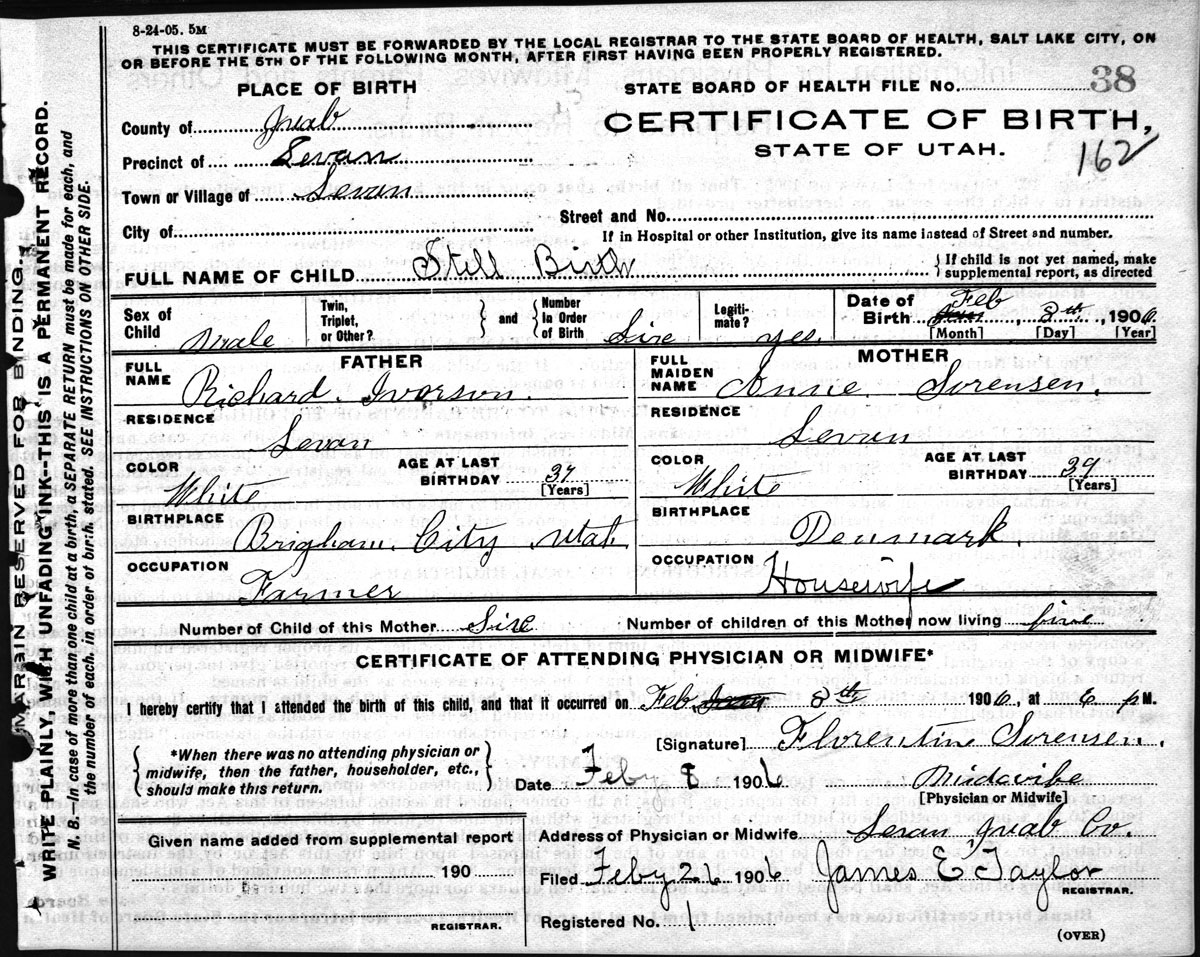 8-24-05. 5M
THIS CERTIFICATE MUST BE FORWARDED BY THE LOCAL REGISTRAR TO THE STATE BOARD OF HEALTH, SALT LAKE CITY, ON
OR BEFORE THE 5TH OF THE FOLLOWING MONTH, AFTER FIRST HAVING BEEN PROPERLY REGISTERED.
PLACE OF BIRTH
STATE BOARD OF HEALTH FILE NO. 38
County of Juab
CERTIFICATE OF BIRTH,
STATE OF UTAH.
162
Precinct of Levan
Town or Village of Levan
Street and No.
City of
If in Hospital or other Institution, give its name instead of Street and number.
FULL NAME OF CHILD Still Birth
{ If child is not yet named, make
supplemental report, as directed
Sex of Child Male
Twin, Triplet, or Other?
} and {
Number In Order of Birth Sixe
Legiti- mate? yes
Date of Birth Feb 8th, 1906
[Month] [Day] [Year]
FATHER
FULL NAME Richard Ivorson.
RESIDENCE Levan
COLOR White
AGE AT LAST BIRTHDAY 37
[Years]
BIRTHPLACE Brigham City Utah
OCCUPATION Farmer
MOTHER
FULL MAIDEN NAME Annie Sorensen.
RESIDENCE Levan
COLOR White
AGE AT LAST BIRTHDAY 39
[Years]
BIRTHPLACE Denmark.
OCCUPATION Housewife
Number of Child of this Mother Sixe Number of children of this Mother now living five
CERTIFICATE OF ATTENDING PHYSICIAN OR MIDWIFE*
I hereby certify that I attended the birth of this child, and that it occurred on Feb 8th 1906, at 6 p M.
{ *When there was no attending physician or
midwife, then the father, householder, etc.,
should make this return. }
[Signature] Florentine Sorensen.
Date Feby 8 1906 Midwife
[Physician or Midwife]
Given name added from supplemental report
190
REGISTRAR.
Address of Physician or Midwife Levan Juab Co.
Filed Feby 26 1906 James E Taylor
REGISTRAR.
Registered No. 1
(OVER)
MARGIN RESERVED FOR BINDING
WRITE PLAINLY, WITH UNFADING INK--THIS IS A PERMANENT RECORD.
N. B.--In case of more than one child at a birth, a SEPARATE RETURN must be made for each, and
the number of each, in order of birth, stated. SEE INSTRUCTIONS ON OTHER SIDE.